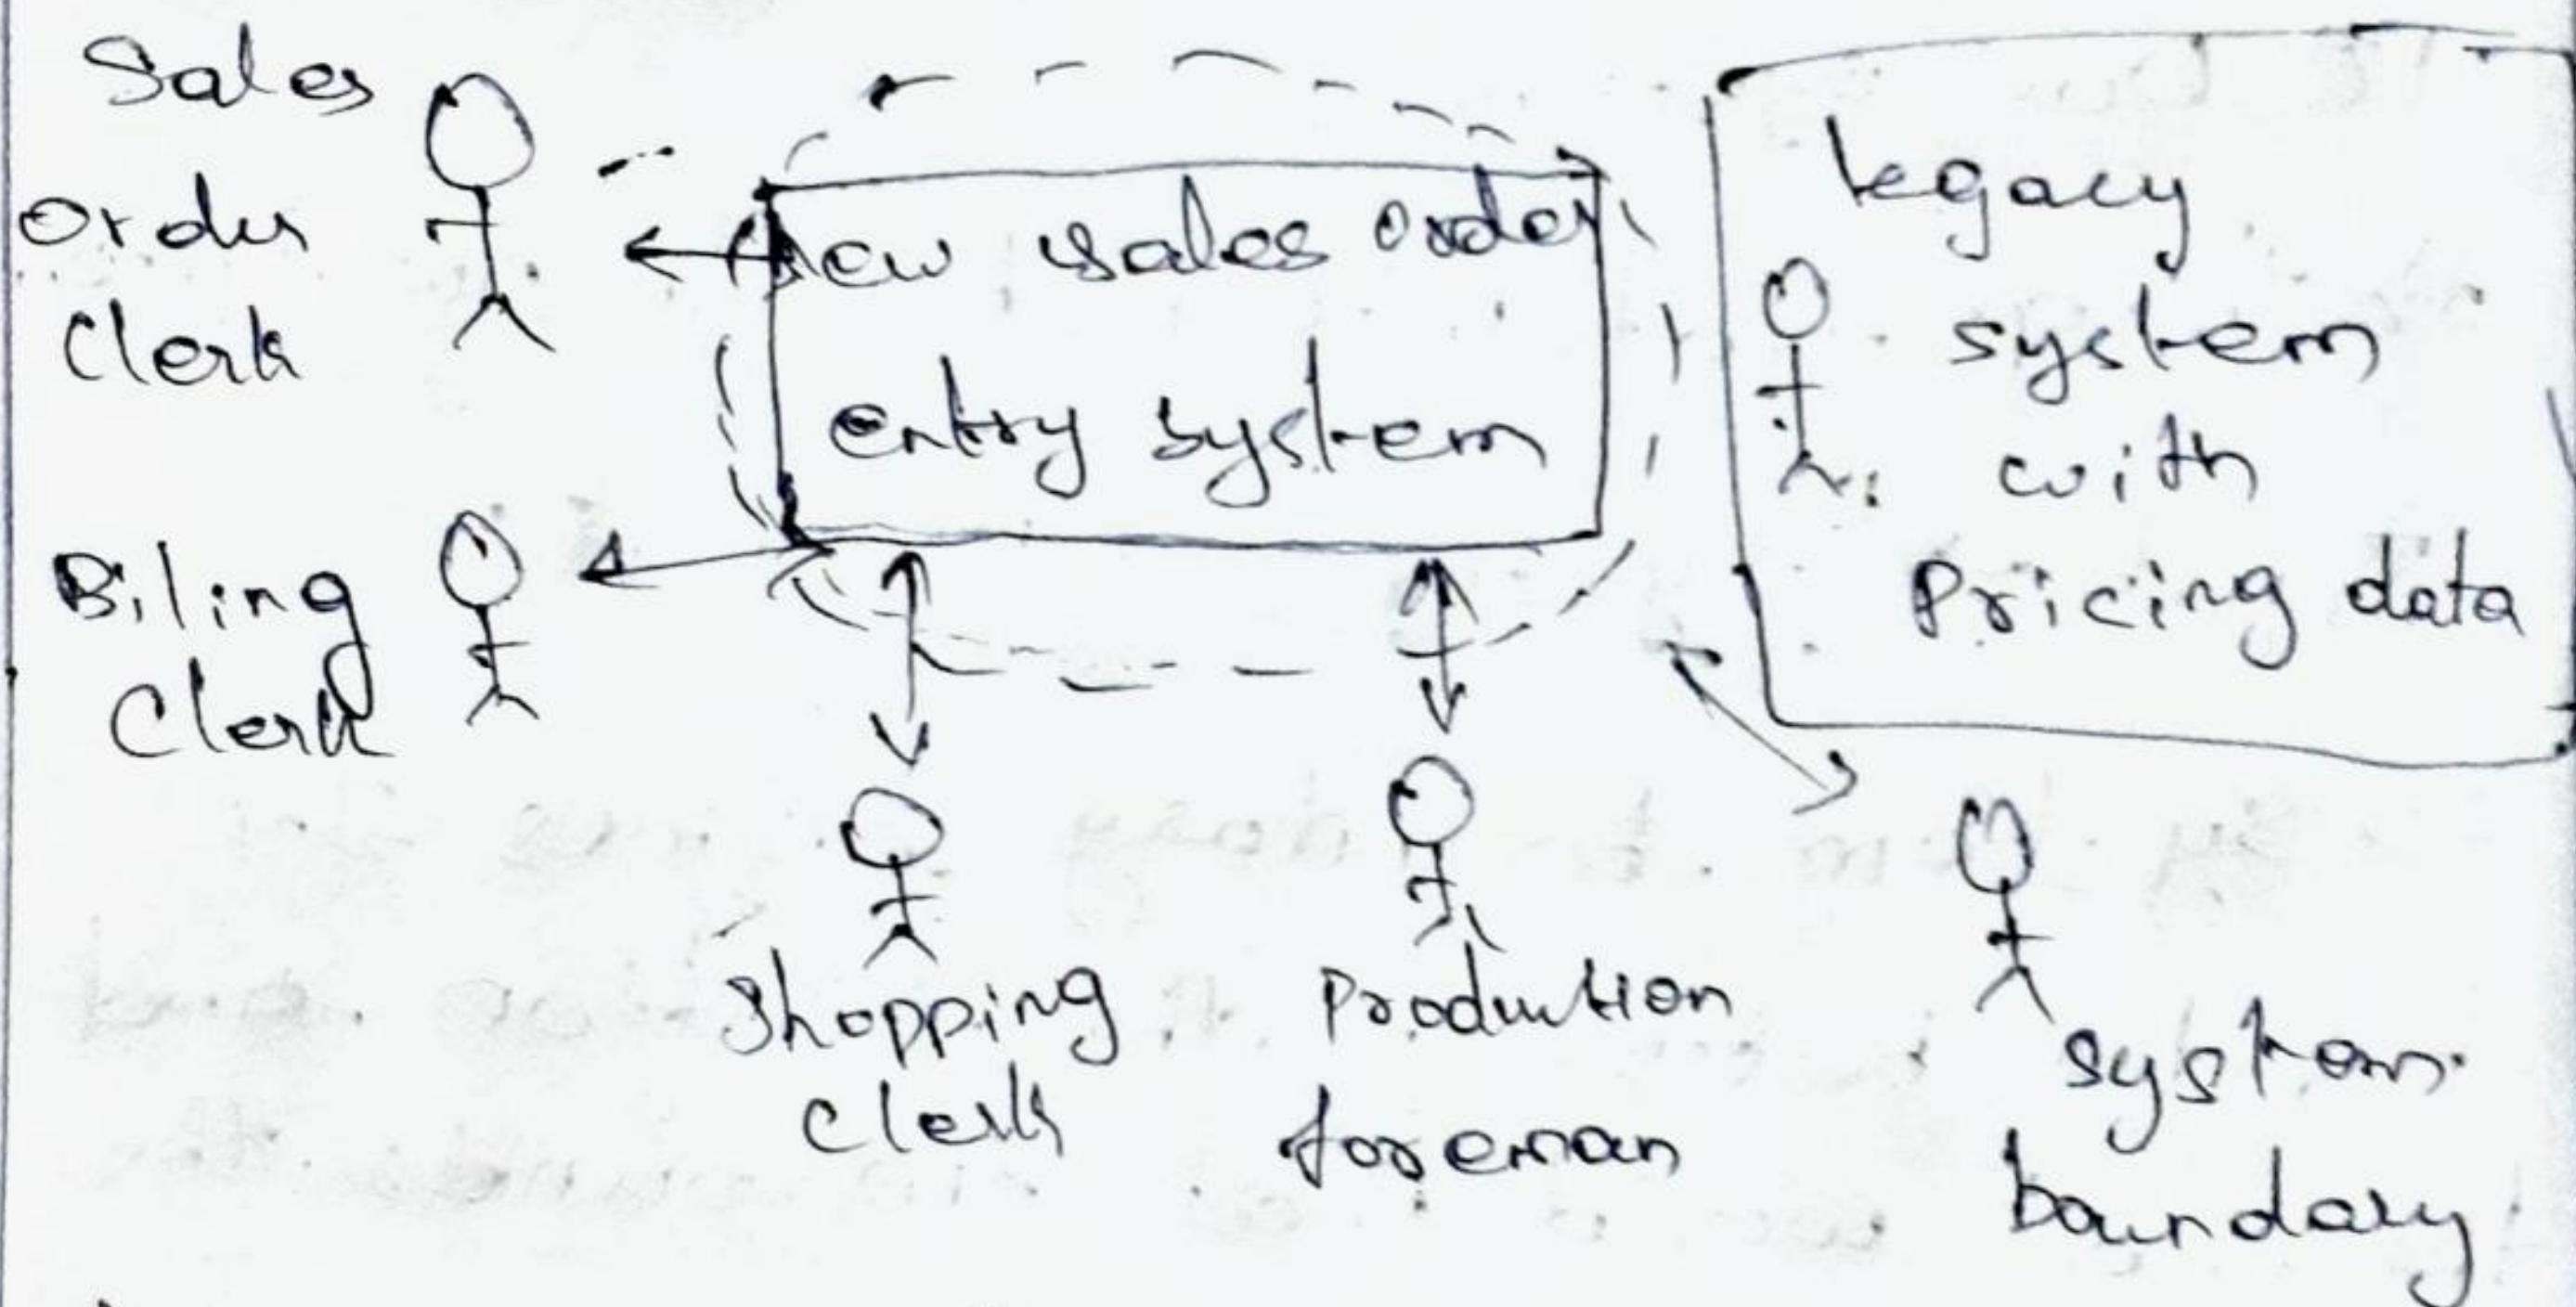 Sales
Order
Clerk
New sales order
entry system
legacy
system
with
Pricing data
Biling
Clerk
Shopping
clerk
Production
foreman
system
boundary